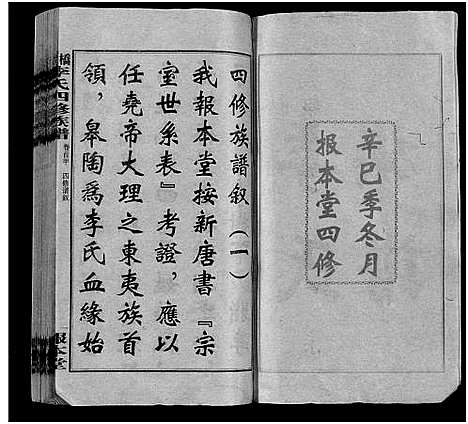 辛巳季冬月
报本堂四修
四修族譜叙（一）
我报本堂按新唐書『宗
室世系表』考證，應以
任堯帝大理之東夷族首
領，皋陶爲李氏血緣始
橋李氏四修族譜
卷首 四修谱叙
报本堂